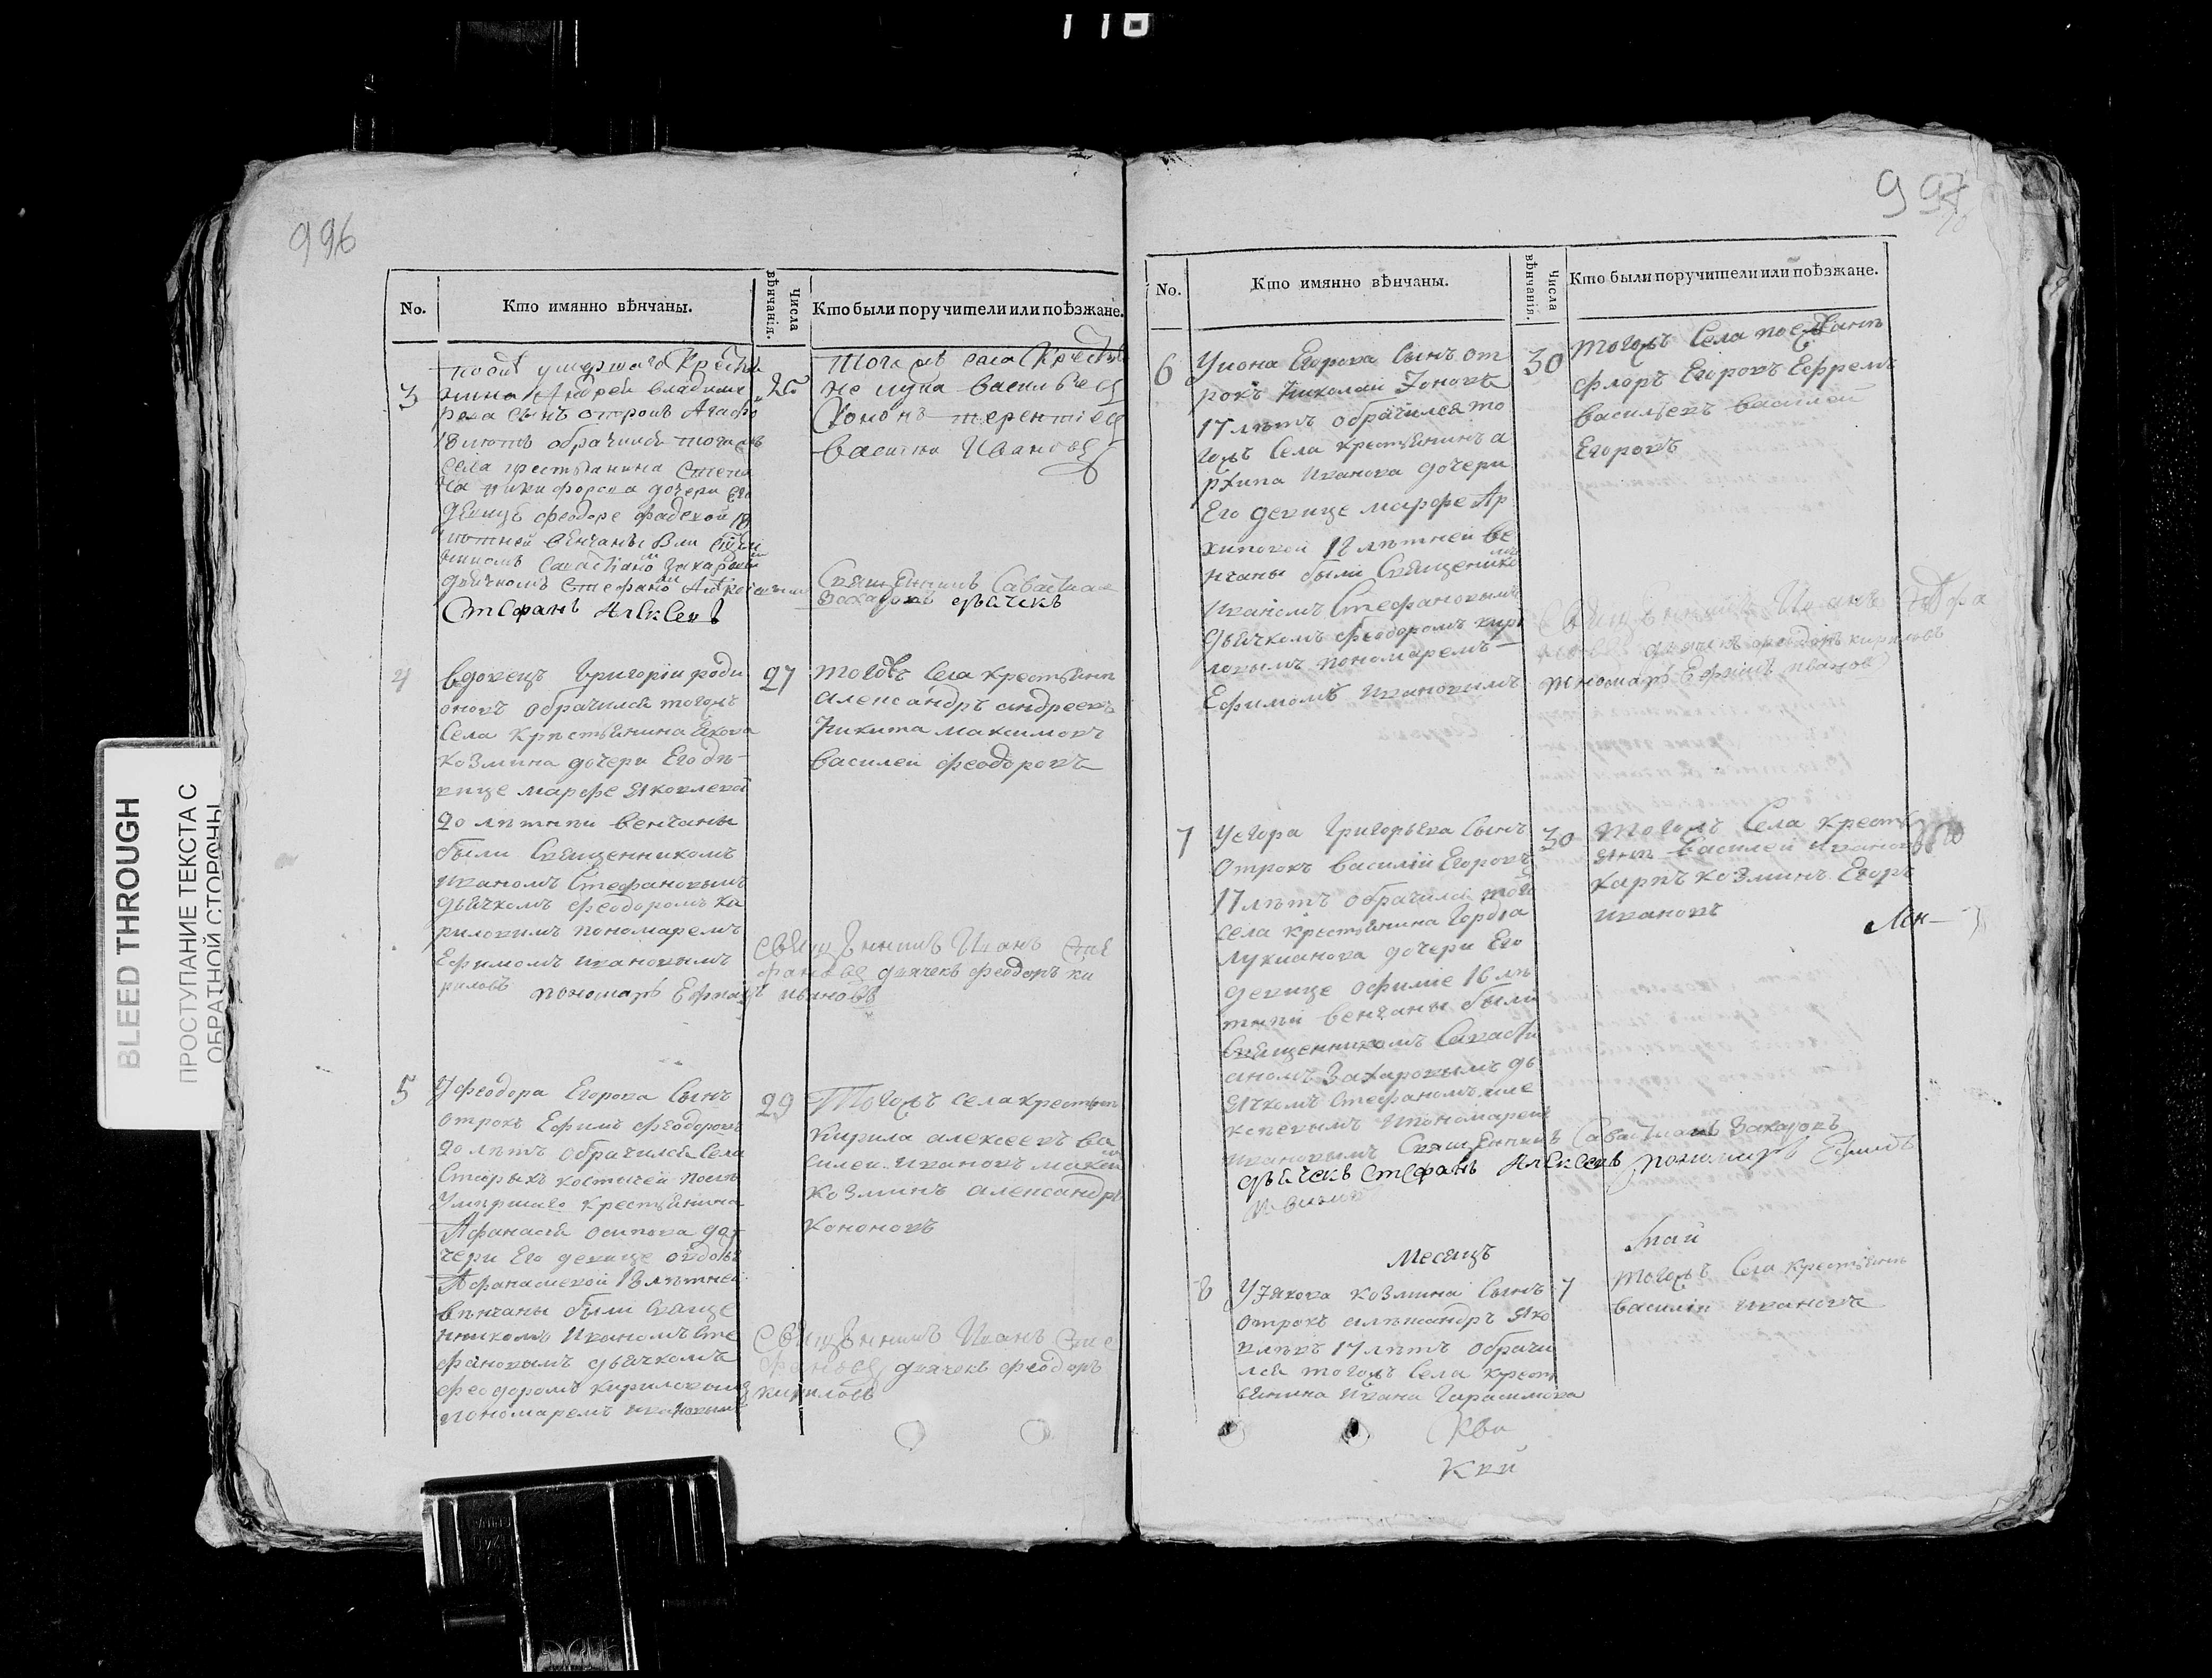 118
996
No.
Кто имянно вѣнчаны.
Числа вѣнчанія.
Кто были поручители или поѣзжане.
3
после умершаго Крестья
нина Андрея владиме
рова сынъ отрокъ Агафо
18 летъ обрачился тогожъ
села крестьянина
никифорова дочери его
девицѣ феодоре
летней венчаны были
Захаровы
дьячкомъ Стефано Алексеевым
Стефанъ Алексеевъ
25
Тогожъ села Крестья
не лука васильевъ
Кононъ терентіевъ
василей Ивановъ
Священникъ Савастиан
Захаровъ дьячекъ
4
вдовецъ Григорій роди
оновъ обрачился тогожъ
Села крестьянина Якова
Козмина дочери Его дѣ
вице марфе Яковлевой
20 летней венчаны
были Священникомъ
иваномъ Стефановымъ
дьячкомъ феодоромъ ки
риловимъ пономаремъ
Ефимомъ ивановымъ
27
тогожъ Села крестьяне
александръ андреевъ
Никита максимовъ
василей феодоровъ
священникъ Иванъ Сте
фановъ дьячекъ феодоръ ки
риловъ пономарь Ефимъ ивановъ
5
У феодора Егорова Сынъ
отрокъ Ефимъ феодоровъ
20 летъ обрачился Села
Старыхъ костычей после
Умершаго крестьянина
Афанасія осипова до
чери Его девице овдотье
Афанасиевой 18 летней
вѣнчаны были Свяще
нникомъ Иваномъ Сте
фановымъ дьячкомъ
феодоромъ кириловымъ
пономаремъ ивановымъ
29
Тогожъ села крестьяне
Кирила алексеевъ ва
силей ивановъ
Козминъ александръ
Кононовъ
священникъ Иванъ Сте
фановъ дьячекъ феодоръ
кириловъ
997
No.
Кто имянно вѣнчаны.
Числа вѣнчанія.
Кто были поручители или поѣзжане.
6
У иона Егорова Сынъ от
рокъ Николай Іоновъ
17 летъ обрачился то
гожъ Села крестьянина а
рхипа иванова дочери
Его девице марфе Ар
хиповой 18 летней ве
нчаны были Священнико
Иваномъ Стефановымъ
дьячкомъ феодоромъ кири
ловымъ пономаремъ
Ефимомъ ивановымъ
30
тогожъ Села поезжанъ
флоръ Егоровъ Ефремъ
васильевъ василей
Егоровъ
Священникъ Иванъ Стефа
новъ дьячекъ феодоръ кириловъ
пономарь Ефимъ ивановъ
7
У егора Григорьева Сынъ
отрокъ василій Егоровъ
17 летъ обрачился того
села крестьянина Гордея
лукианова дочери Его
девице офимие 16 ле
тней венчаны были
Священникомъ Савасти
аномъ Захаровымъ дь
ячкомъ Стефаномъ але
ксеевымъ пономарем
ивановымъ Священникъ Савастианъ Захаровъ
дьячекъ Стефанъ Алексеевъ пономарь Ефимъ
Ивановъ
30
тогожъ Села кресть
яне василей иванов
карпъ козминъ Егоръ
ивановъ
Лен
Месяцъ
май
8
У Якова козмина Сынъ
отрокъ александръ Яко
влевъ 17 летъ обрачи
лся тогожъ Села крест
ьянина ивана Гарасимова
7
тогожъ Села крестьяне
василій ивановъ